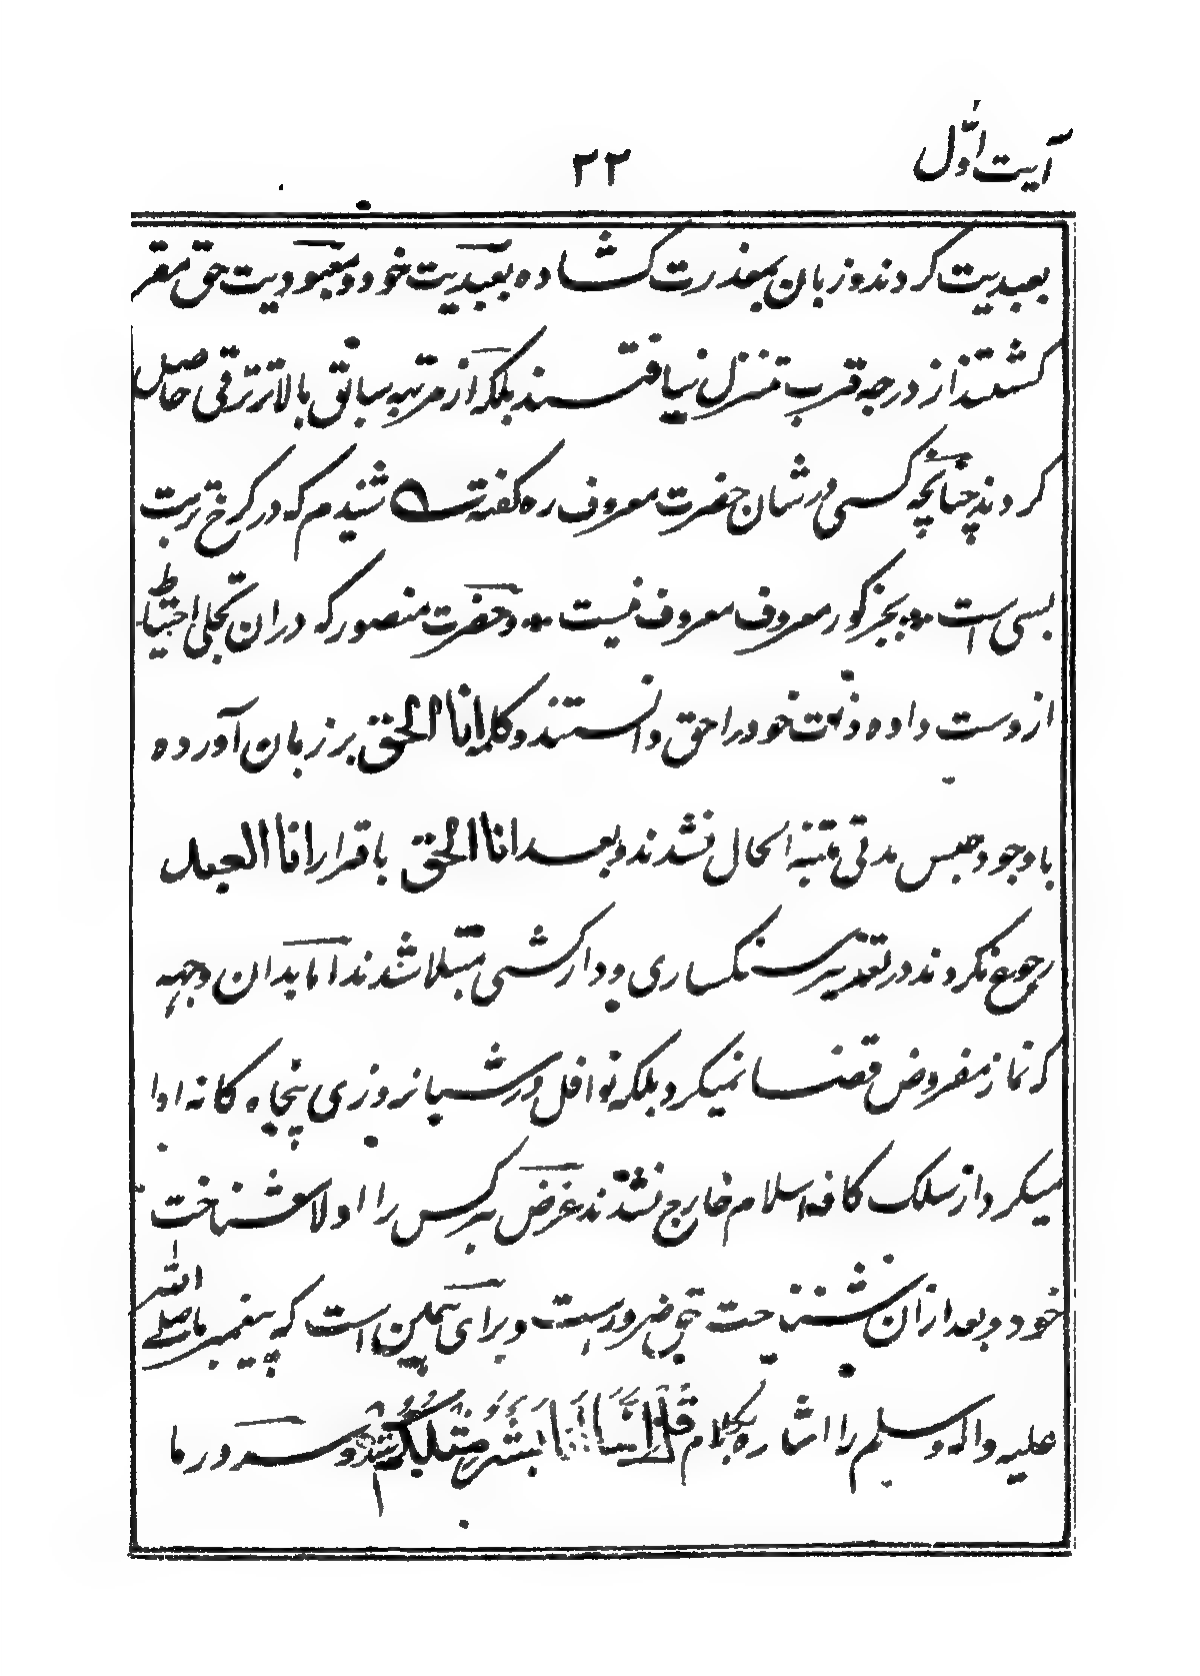 آیت اوّل
۲۲
بعبدیت کردند و زبان بمعذرت کشاده بعبدیت خود و معبودیت حق مقر
کشتند از درجه قرب تنزل نیافتند بلکه از مرتبه سابق بالاتر ترقی حاصل
کردند چنانچه کسی در شان حضرت معروف ره کفته شنیدم که در کرخ تربت
بسی است ٭ بجز کور معروف معروف نیست ٭ و حضرت منصور که دران تجلی احتیاط
از دست داده ذات خود را حق دانستند و کلمه انا الحق بر زبان آورده
باوجود حبس مدتی متنبه الحال نشدند و بعد انا الحق باقرار انا العبد
رجوع نکردند در تعذیر سنکساری و دارکشی مبتلا شدند اما بدان وجهه
که نماز مفروض قضا نمیکرد بلکه نوافل در شبانروزی پنجاه کانه ادا
میکرد از سلک کافه اسلام خارج نشدند غرض هر کس را اولا شناخت
خود و بعد ازان شناخت حق ضرور است و برای همین است که پیغمبر ما صلی الله
علیه و اله وسلم را اشاره بکلام قل انما انا بشر مثلکم شد و سرور ما